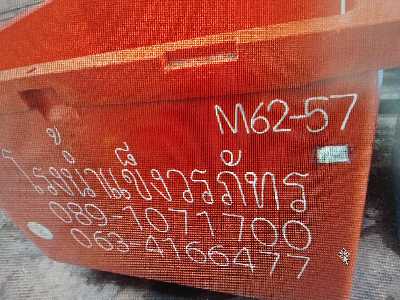 M62-57
โรงน้ำแข็งวรภัทร
089-1071700
063-4166477